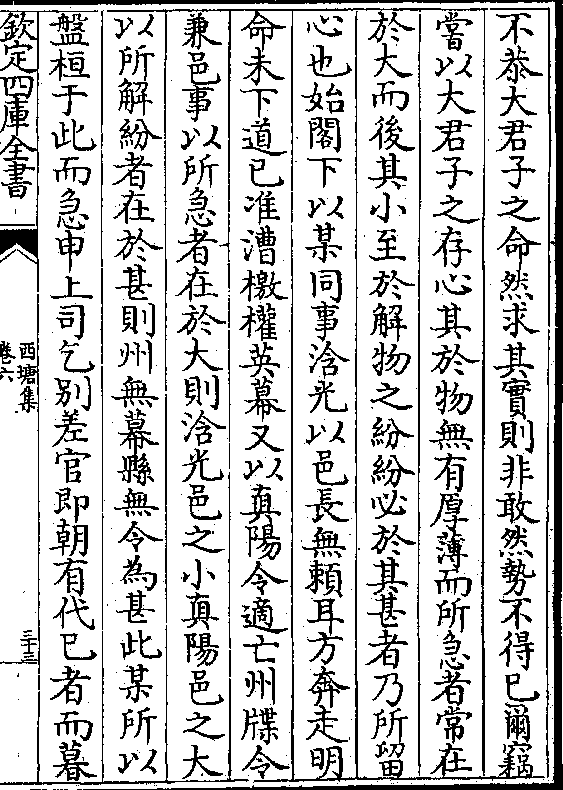 不恭大君子之命然求其實則非敢然勢不得已爾竊
嘗以大君子之存心其於物無有厚薄而所急者常在
於大而後其小至於解物之紛紛必於其甚者乃所留
心也始閣下以某同事浛光以邑長無頼耳方奔走明
命未下道已准漕檄權英幕又以真陽令適亡州牒令
兼邑事以所急者在於大則浛光邑之小真陽邑之大
以所解紛者在於甚則州無幕縣無令為甚此某所以
盤桓于此而急申上司乞別差官即朝有代已者而暮
欽定四庫全書
西塘集
卷六
三十三